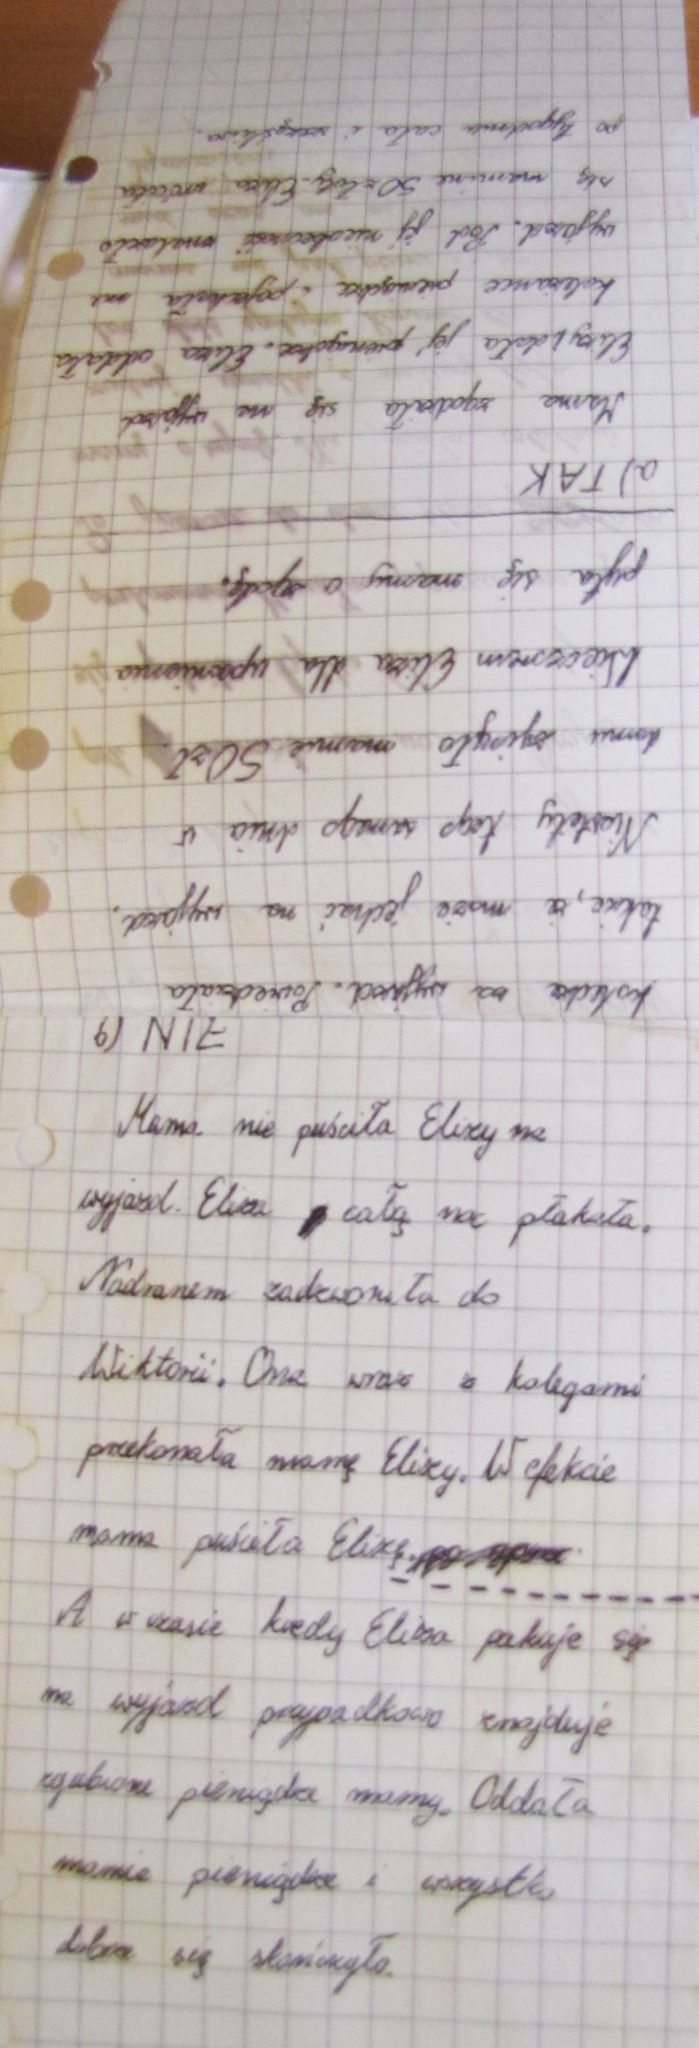 koleżka za wyjazd. Powiedziała
także, że może jechać na wyjazd.
Niestety tego samego dnia w
domu zginęło mamie 50zł.
Wieczorem Eliza dla upewnienia
pyta się mamy o zgodę.
a) TAK
Mama zgodziła się na wyjazd
Elizy i dała jej pieniądze. Eliza oddała
koleżance pieniądze i pojechała na
wyjazd. Pod jej nieobecność znalazło
się mamine 50 złoty. Eliza wróciła
po tygodniu cała i szczęśliwa.
b) NIE
Mama nie puściła Elizy na
wyjazd. Eliza całą noc płakała.
Nadranem zadzwoniła do
Wiktorii. Ona wraz z kolegami
przekonała mamę Elizy. W efekcie
mama puściła Elizę.
A w czasie kiedy Eliza pakuje się
na wyjazd przypadkowo znajduje
zgubione pieniądze mamy. Oddała
mamie pieniądze i wszystko
dobrze się skończyło.